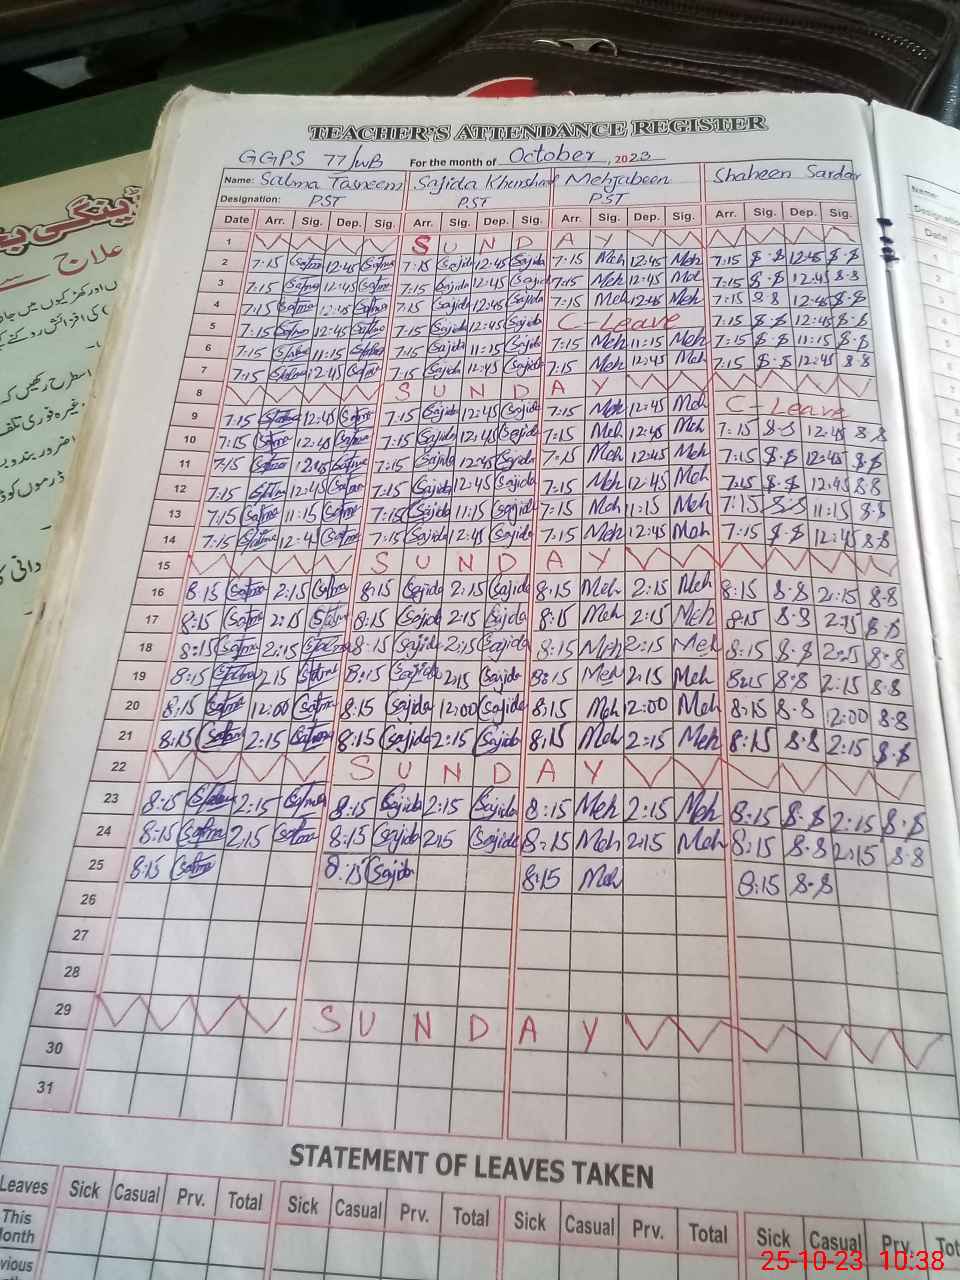 TEACHER'S ATTENDANCE REGISTER
GGPS 77/WB For the month of October, 2023
Name: Salma Tasneem Sajida Khurshad Mehjabeen Shaheen Sardar
Designation: PST PST PST
Date Arr. Sig. Dep. Sig. Arr. Sig. Dep. Sig. Arr. Sig. Dep. Sig. Arr. Sig. Dep. Sig.
1 S U N D A Y
2 7:15 Salma 12:45 Salma 7:15 Sajida 12:45 Sajida 7:15 Meh 12:45 Meh 7:15 S-S 12:45 S-S
3 7:15 Salma 12:45 Salma 7:15 Sajida 12:45 Sajida 7:15 Meh 12:45 Meh 7:15 S-S 12:45 S-S
4 7:15 Salma 12:45 Salma 7:15 Sajida 12:45 Sajida 7:15 Meh 12:45 Meh 7:15 S-S 12:45 S-S
5 7:15 Salma 12:45 Salma 7:15 Sajida 12:45 Sajida C-Leave 7:15 S-S 12:45 S-S
6 7:15 Salma 11:15 Salma 7:15 Sajida 11:15 Sajida 7:15 Meh 11:15 Meh 7:15 S-S 11:15 S-S
7 7:15 Salma 12:45 Salma 7:15 Sajida 12:45 Sajida 7:15 Meh 12:45 Meh 7:15 S-S 12:45 S-S
8 S U N D A Y
9 7:15 Salma 12:45 Salma 7:15 Sajida 12:45 Sajida 7:15 Meh 12:45 Meh C-Leave
10 7:15 Salma 12:45 Salma 7:15 Sajida 12:45 Sajida 7:15 Meh 12:45 Meh 7:15 S-S 12:45 S-S
11 7:15 Salma 12:45 Salma 7:15 Sajida 12:45 Sajida 7:15 Meh 12:45 Meh 7:15 S-S 12:45 S-S
12 7:15 Salma 12:45 Salma 7:15 Sajida 12:45 Sajida 7:15 Meh 12:45 Meh 7:15 S-S 12:45 S-S
13 7:15 Salma 11:15 Salma 7:15 Sajida 11:15 Sajida 7:15 Meh 11:15 Meh 7:15 S-S 11:15 S-S
14 7:15 Salma 12:45 Salma 7:15 Sajida 12:45 Sajida 7:15 Meh 12:45 Meh 7:15 S-S 12:45 S-S
15 S U N D A Y
16 8:15 Salma 2:15 Salma 8:15 Sajida 2:15 Sajida 8:15 Meh 2:15 Meh 8:15 S-S 2:15 S-S
17 8:15 Salma 2:15 Salma 8:15 Sajida 2:15 Sajida 8:15 Meh 2:15 Meh 8:15 S-S 2:15 S-S
18 8:15 Salma 2:15 Salma 8:15 Sajida 2:15 Sajida 8:15 Meh 2:15 Meh 8:15 S-S 2:15 S-S
19 8:15 Salma 2:15 Salma 8:15 Sajida 2:15 Sajida 8:15 Meh 2:15 Meh 8:15 S-S 2:15 S-S
20 8:15 Salma 12:00 Salma 8:15 Sajida 12:00 Sajida 8:15 Meh 12:00 Meh 8:15 S-S 12:00 S-S
21 8:15 Salma 2:15 Salma 8:15 Sajida 2:15 Sajida 8:15 Meh 2:15 Meh 8:15 S-S 2:15 S-S
22 S U N D A Y
23 8:15 Salma 2:15 Salma 8:15 Sajida 2:15 Sajida 8:15 Meh 2:15 Meh 8:15 S-S 2:15 S-S
24 8:15 Salma 2:15 Salma 8:15 Sajida 2:15 Sajida 8:15 Meh 2:15 Meh 8:15 S-S 2:15 S-S
25 8:15 Salma 8:15 Sajida 8:15 Meh 8:15 S-S
26
27
28
29 S U N D A Y
30
31
STATEMENT OF LEAVES TAKEN
Leaves Sick Casual Prv. Total Sick Casual Prv. Total Sick Casual Prv. Total Sick Casual Prv.
This
25-10-23 10:38
Name:
Date
علاج